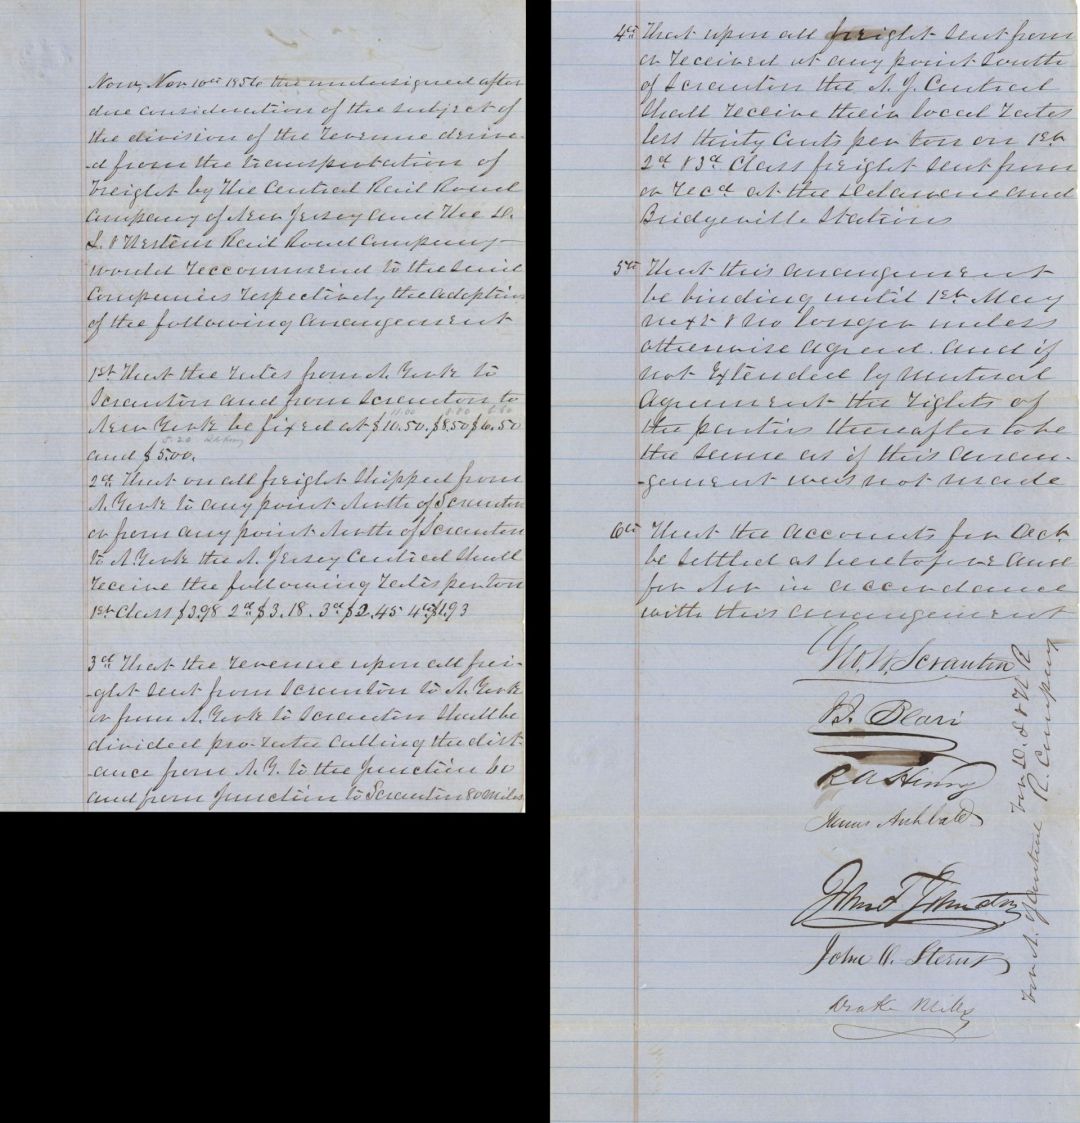 Now, Nov 10th 1856 the undersigned after
due consideration of the subject of
the division of the revenue derive-
-d from the transportation of
freight by the Central Rail Road
Company of New Jersey and the D.
L. & Western Rail Road Company
would reccommend to the said
Companies respectively the adoption
of the following arrangement
1st That the rates from N. York to
Scranton and from Scranton to
11.00 8.80 6.60
New York be fixed at $10.50. $8.50 $6.50
5.20
and $5.00.
2d That on all freight shipped from
N. York to any point North of Scranton
or from any point North of Scranton
to N York the N. Jersey Central shall
receive the following rates per ton
1st Class $3.98 2d $3.18. 3d $2.45 4th $1.93
3d That the revenue upon all frei-
-ght sent from Scranton to N. York
or from N. York to Scranton shall be
divided pro-rata calling the dist-
ance from N. Y. to the Junction 60
and from Junction to Scranton 80 miles
4th That upon all freight sent from
or received at any point South
of Scranton the N. J. Central
shall receive their local rates
less thirty cents per ton on 1st
2d & 3d Class freight sent from
or recd at the Delaware and
Bridgeville Stations
5th That this arrangement
be binding until 1st May
next & no longer unless
otherwise agreed. and if
not extended by mutual
agreement the rights of
the parties thereafter to be
the same as if this arran-
-gement was not made
6th That the accounts for Oct
be settled as heretofore and
for Nov in accordance
with this arrangement
Geo. W. Scranton
R A Henry
James Archbald
for D. L & W R
R. Company
John T Johnston
John O. Sterns
Drake Mills
for N. J Central